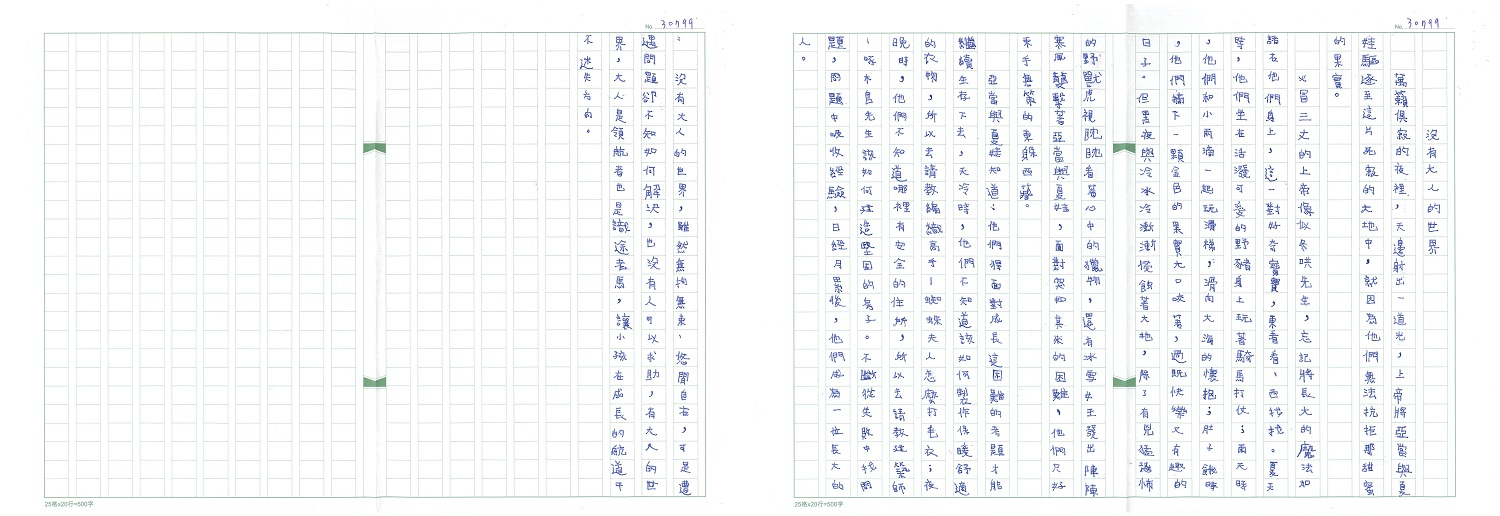 No. 30799
沒有大人的世界
萬籟俱寂的夜裡，天邊射出一道光，上帝將亞當與夏
娃驅逐至這片死寂的大地中，就因為他們無法抗拒那甜蜜
的果實。
火冒三丈的上帝像似冬烘先生，忘記將長大的魔法加
諸在他們身上，這一對好奇寶寶，東看看、西找找。夏天
時，他們坐在活潑可愛的野豬身上玩著騎馬打仗；雨天時
，他們和小雨滴一起玩滑梯，滑向大海的懷抱；肚子餓時
，他們摘下一顆金色的果實大口咬著，過既快樂又有趣的
日子。但黑夜與冷冰冷漸漸侵蝕著大地，除了有兇猛恐怖
的野獸虎視眈眈看著心中的獵物，還有冰雪女王發出陣陣
寒風襲擊著亞當與夏娃，面對突如其來的困難，他們只好
束手無策的東躲西藏。
亞當與夏娃知道：他們得面對成長這困難的考題才能
繼續生存下去，天冷時，他們不知道該如何製作保暖舒適
的衣物，所以去請教編織高手－蜘蛛夫人怎麼打毛衣；夜
晚時，他們不知道哪裡有安全的住所，所以去請教建築師
－啄木鳥先生該如何建造堅固的房子。不斷從失敗中找問
題，問題中吸收經驗，日經月累後，他們成為一位長大的
人。
No. 30799
沒有大人的世界，雖然無拘無束、悠閒自在，可是遭
遇問題卻不知如何解決，也沒有人可以求助，有大人的世
界，大人是領航者也是識途老馬，讓小孩在成長的航道中
不迷失方向。
25格x20行=500字
25格x20行=500字